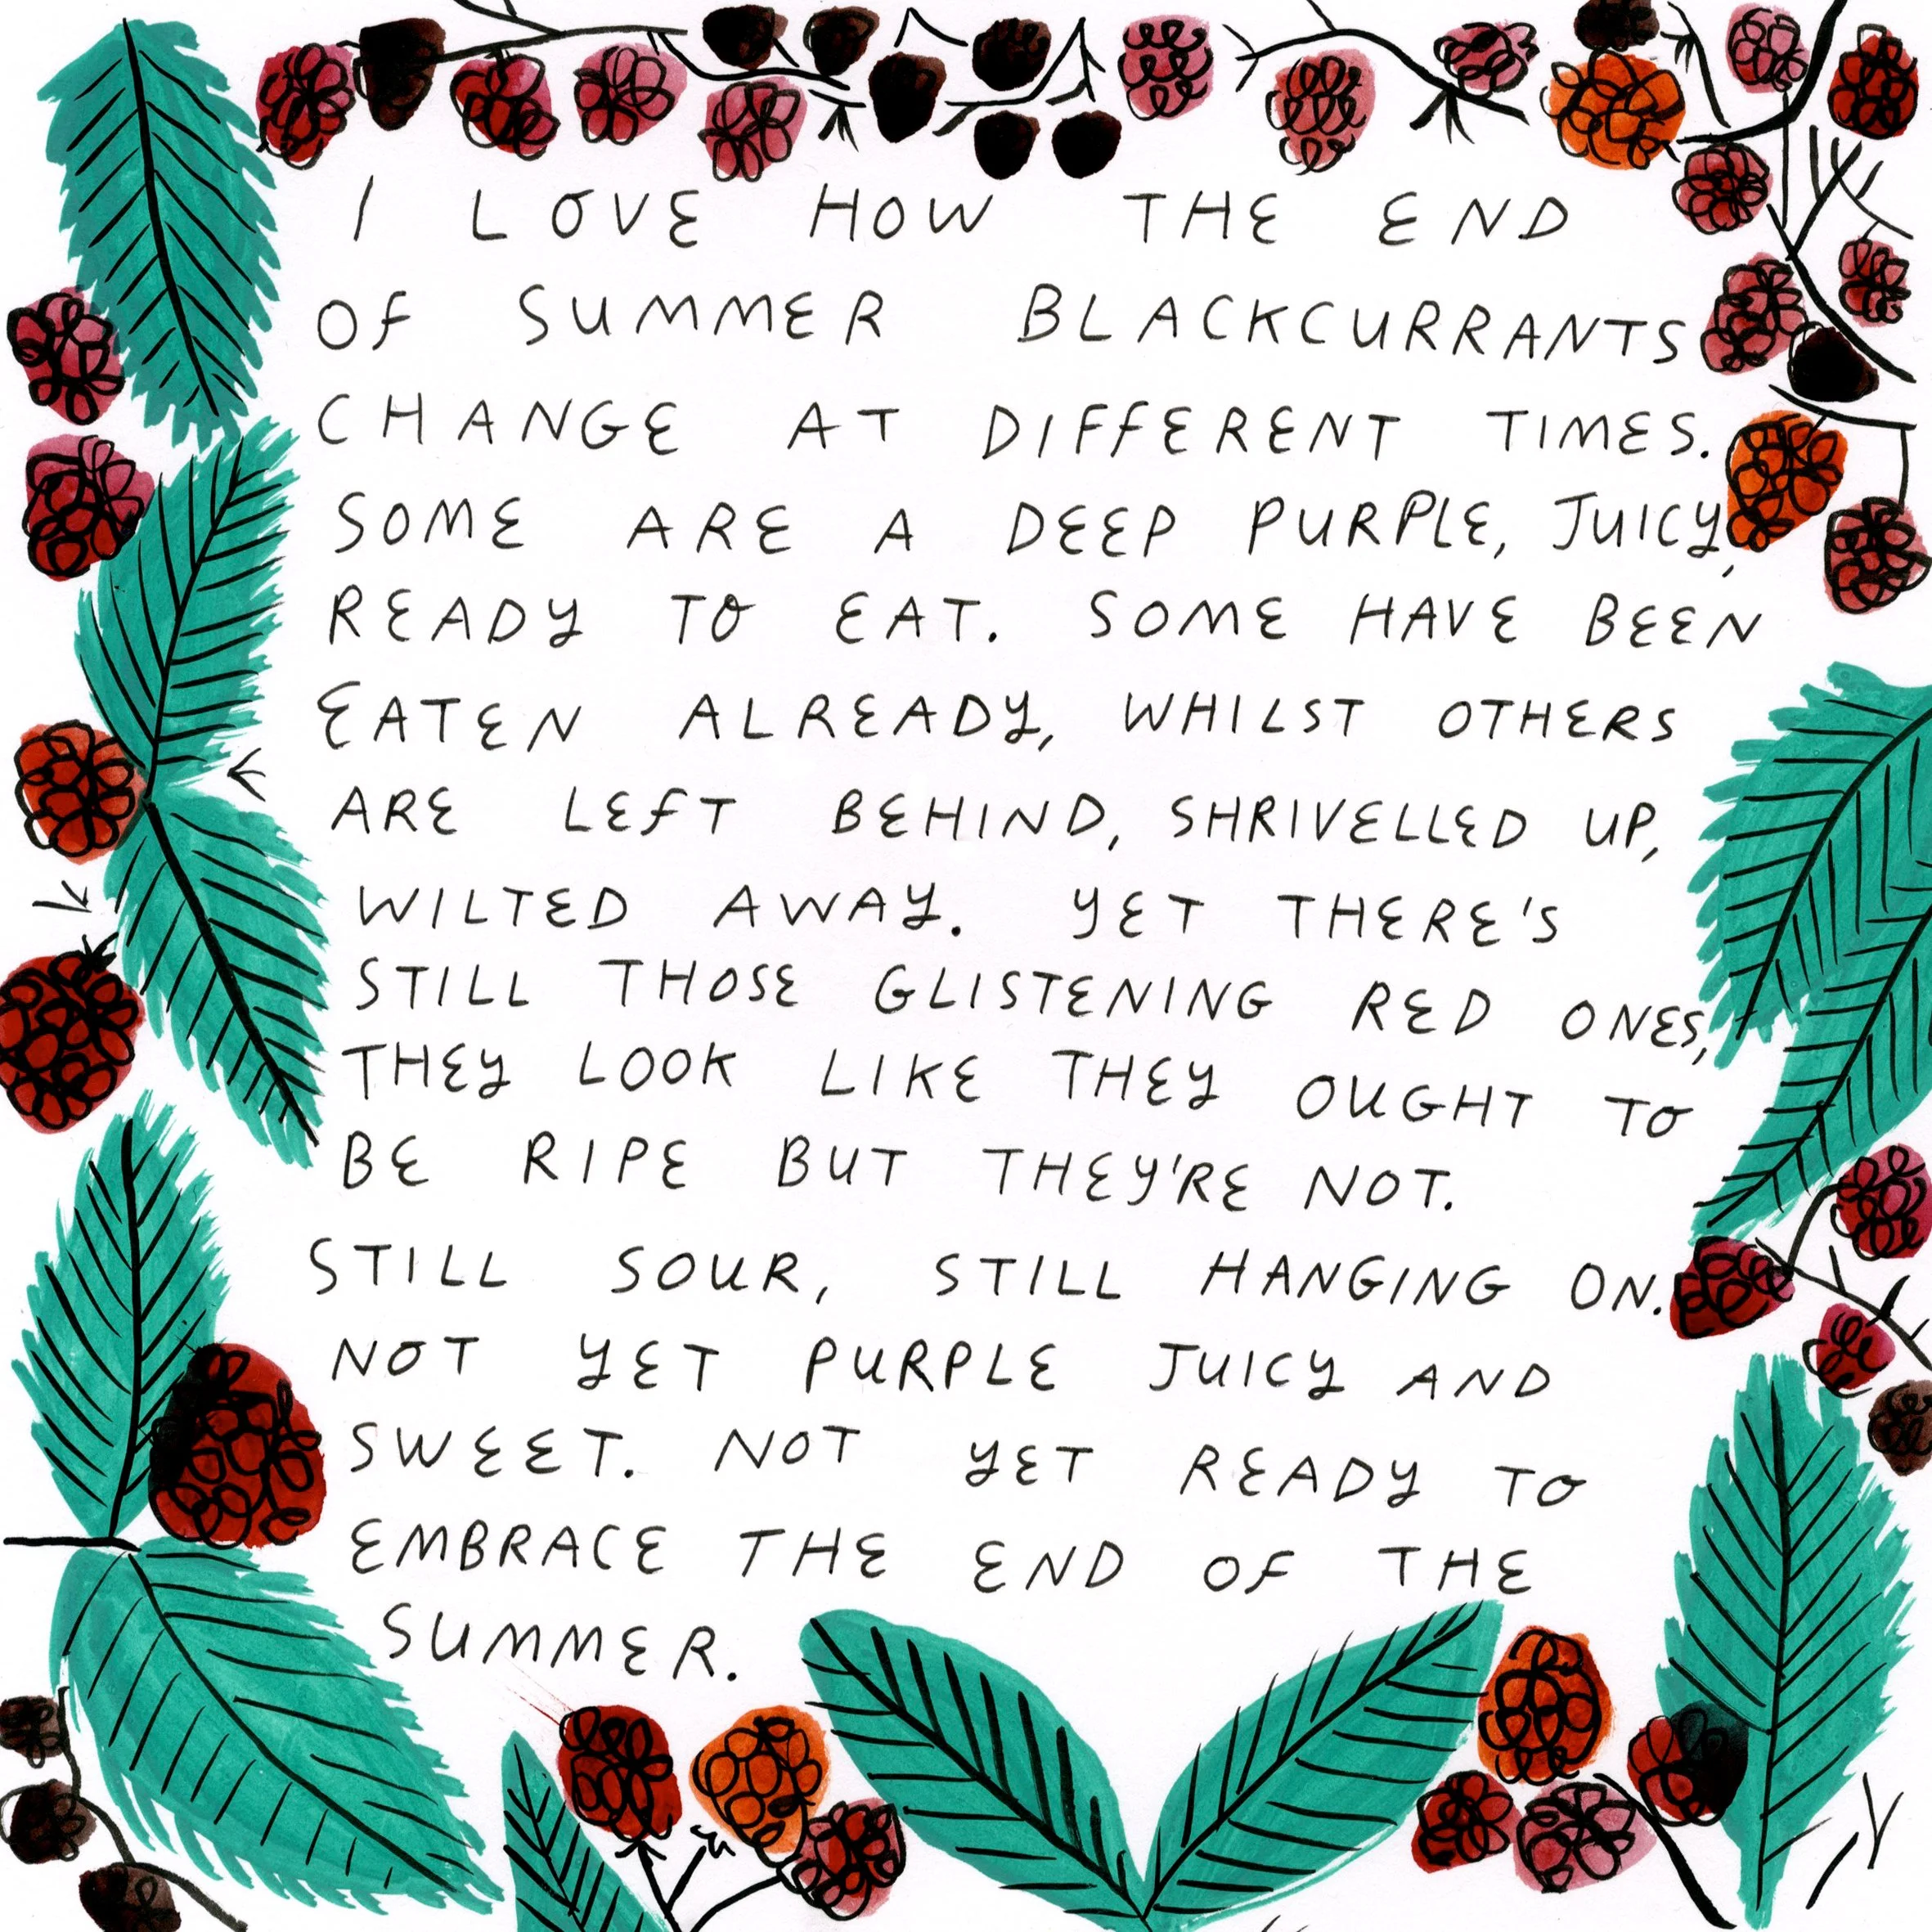 I LOVE HOW THE END
OF SUMMER BLACKCURRANTS
CHANGE AT DIFFERENT TIMES.
SOME ARE A DEEP PURPLE, JUICY,
READY TO EAT. SOME HAVE BEEN
EATEN ALREADY, WHILST OTHERS
ARE LEFT BEHIND, SHRIVELLED UP,
WILTED AWAY. YET THERE'S
STILL THOSE GLISTENING RED ONES,
THEY LOOK LIKE THEY OUGHT TO
BE RIPE BUT THEY'RE NOT.
STILL SOUR, STILL HANGING ON.
NOT YET PURPLE JUICY AND
SWEET. NOT YET READY TO
EMBRACE THE END OF THE
SUMMER.